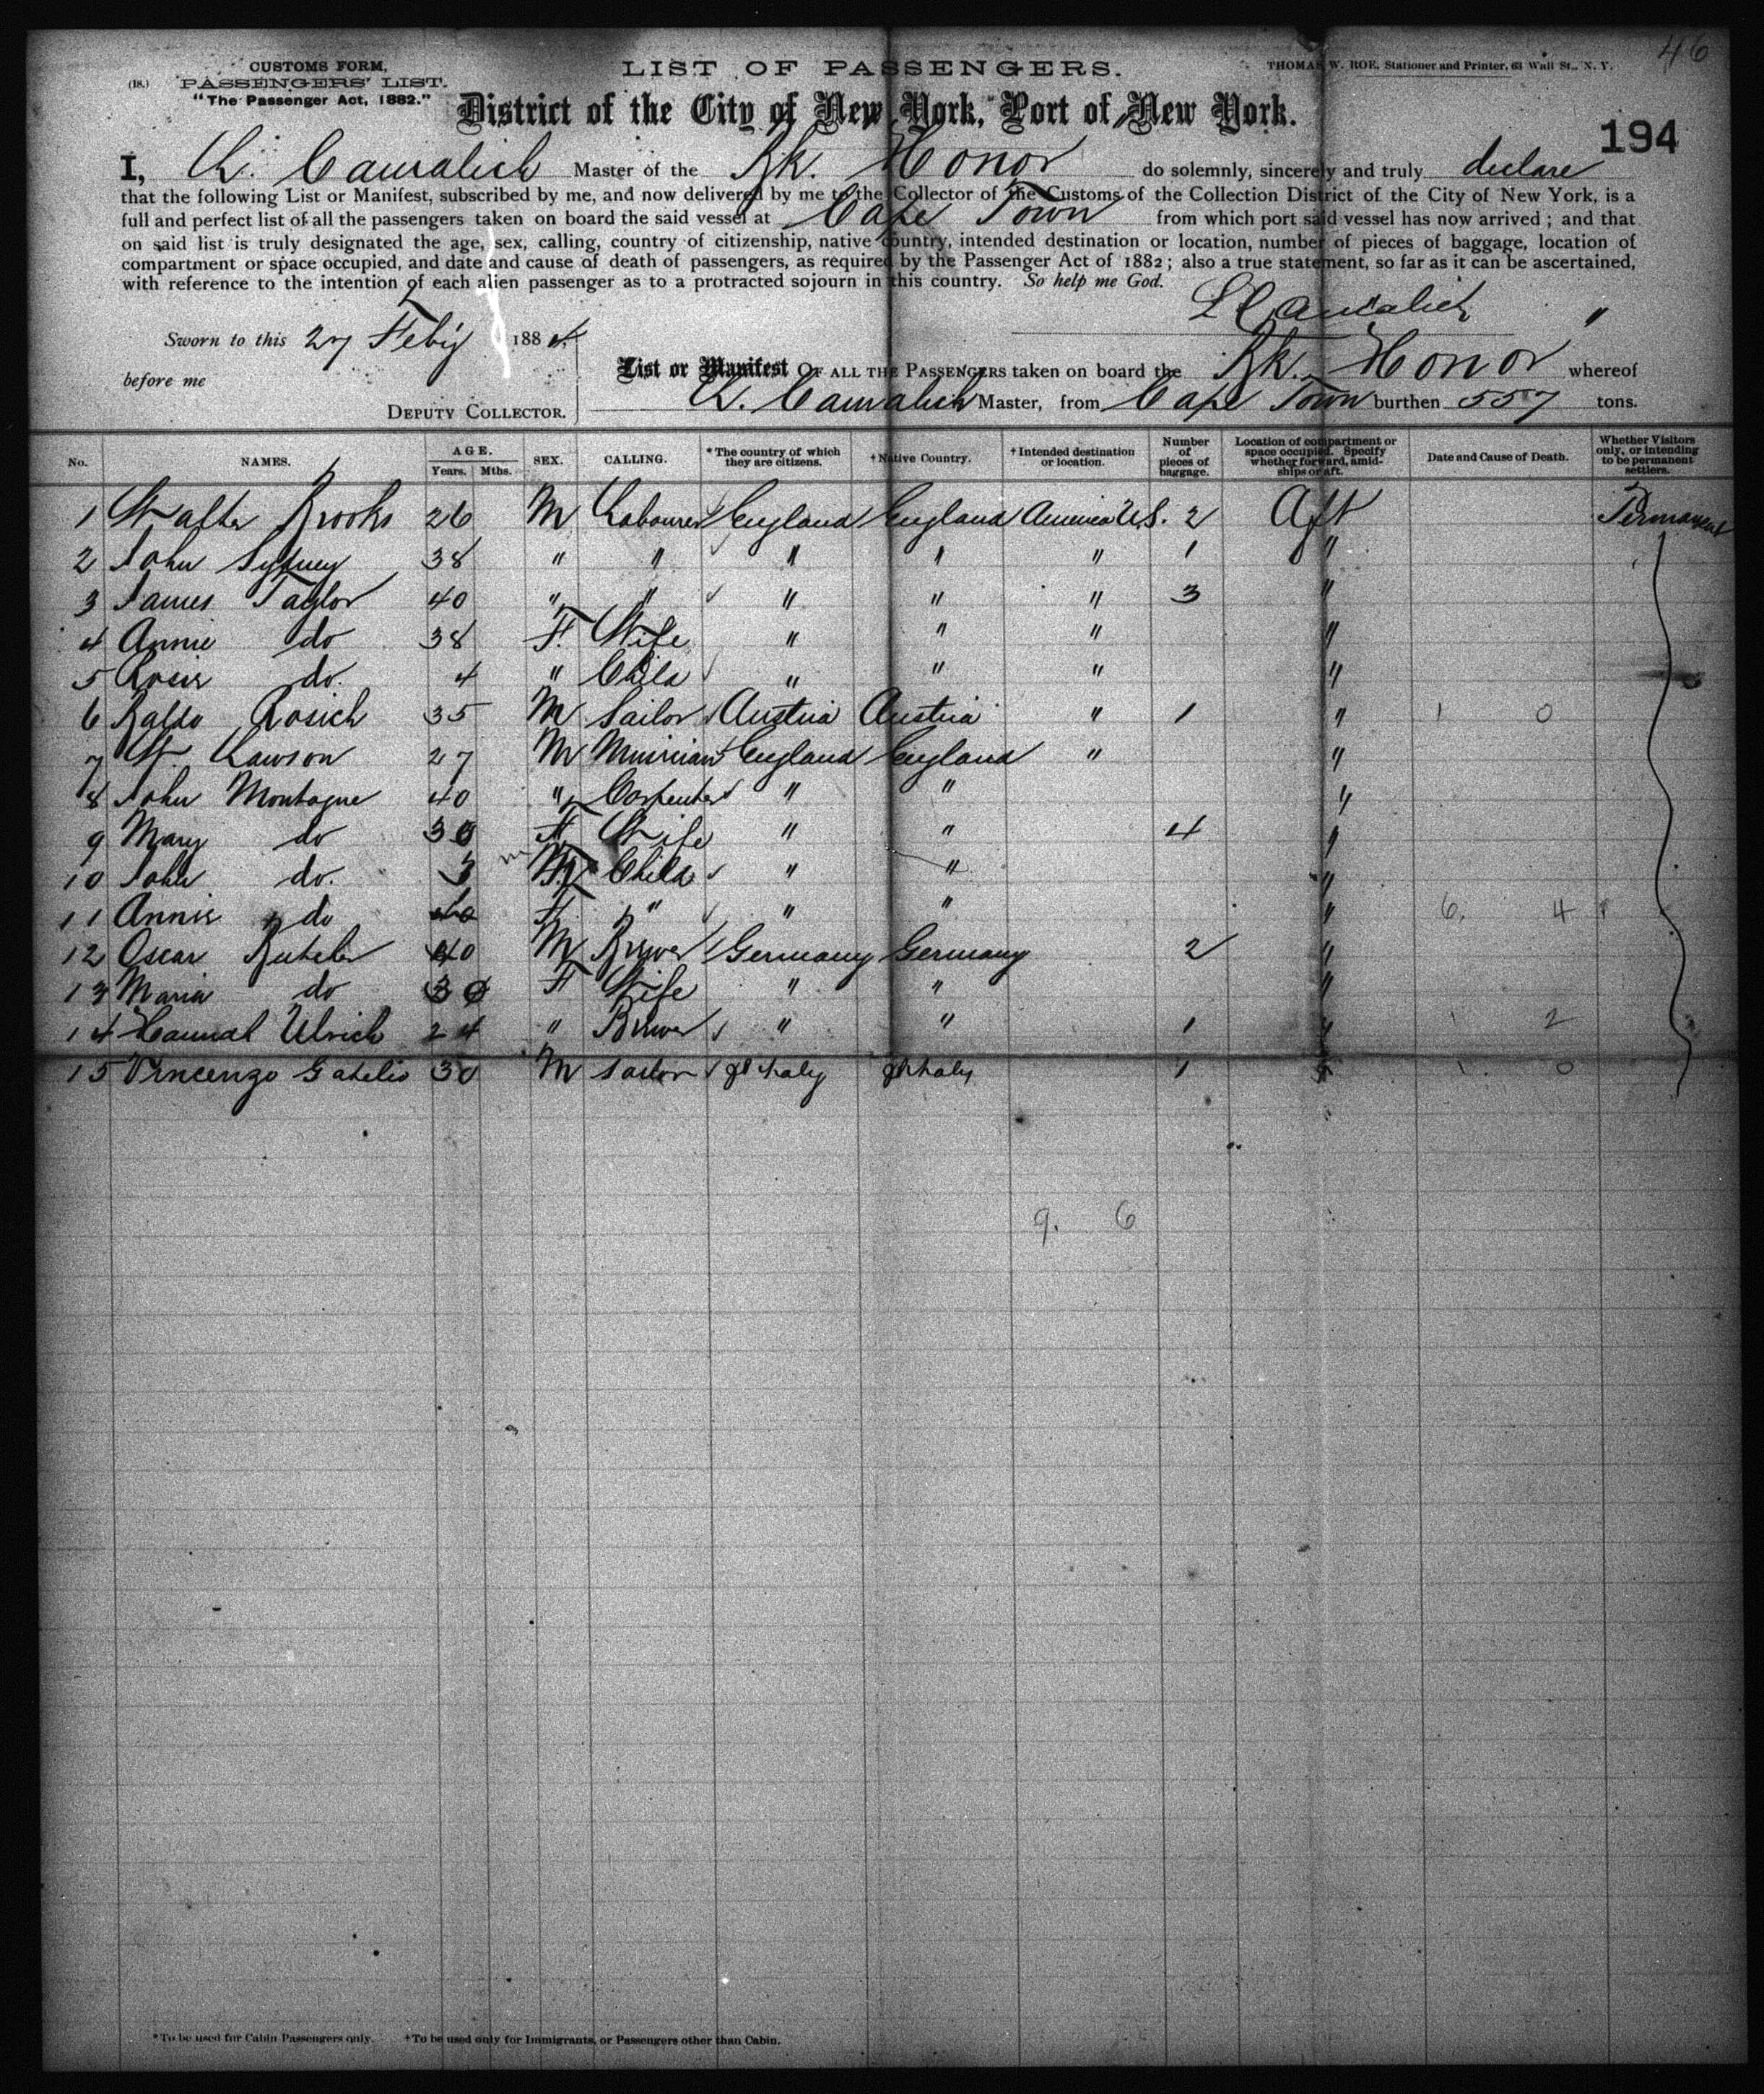 46
CUSTOMS FORM,
(18.) PASSENGERS' LIST.
"The Passenger Act, 1882."
LIST OF PASSENGERS.
THOMAS W. ROE, Stationer and Printer, 63 Wall St., N. Y.
District of the City of New York, Port of New York.
194
I, Master of the Bk. Honor do solemnly, sincerely and truly declare
that the following List or Manifest, subscribed by me, and now delivered by me to the Collector of the Customs of the Collection District of the City of New York, is a
full and perfect list of all the passengers taken on board the said vessel at Cape Town from which port said vessel has now arrived; and that
on said list is truly designated the age, sex, calling, country of citizenship, native country, intended destination or location, number of pieces of baggage, location of
compartment or space occupied, and date and cause of death of passengers, as required by the Passenger Act of 1882; also a true statement, so far as it can be ascertained,
with reference to the intention of each alien passenger as to a protracted sojourn in this country. So help me God.
Sworn to this 27 Feb'y 1884.
before me
DEPUTY COLLECTOR.
List or Manifest OF ALL THE PASSENGERS taken on board the Bk. Honor whereof
Master, from Cape Town burthen 557 tons.
No. NAMES. AGE. Years. Mths. SEX. CALLING. *The country of which they are citizens. †Native Country. †Intended destination or location. Number of pieces of baggage. Location of compartment or space occupied. Specify whether forward, amidships or aft. Date and Cause of Death. Whether Visitors only, or intending to be permanent settlers.
1 Walter Brooks 26 M Labourer England England America U.S. 2 Aft Permanent
2 John Sydney 38 " " " " " 1 "
3 James Taylor 40 " " " " " 3 "
4 Annie do 38 F. Wife " " " "
5 Rosie do. 4 " Child " " " "
6 Rosich 35 M Sailor Austria Austria " 1 " 1 0
7 W. Lawson 27 M England England " "
8 John Montague 40 " Carpenter " " "
9 Mary do 30 F. Wife " " 4 "
10 John do. 3 M Child " " "
11 Annie do F. " " " " 6. 4
12 Oscar 40 M Brewer Germany Germany 2 "
13 Maria do 30 F Wife " " "
14 Hannah Ulrich 24 " Brewer " " 1 " 1 2
15 Vincenzo 30 M Sailor Ithaly Ithaly 1 " 1. 0
9. 6
*To be used for Cabin Passengers only. †To be used only for Immigrants, or Passengers other than Cabin.